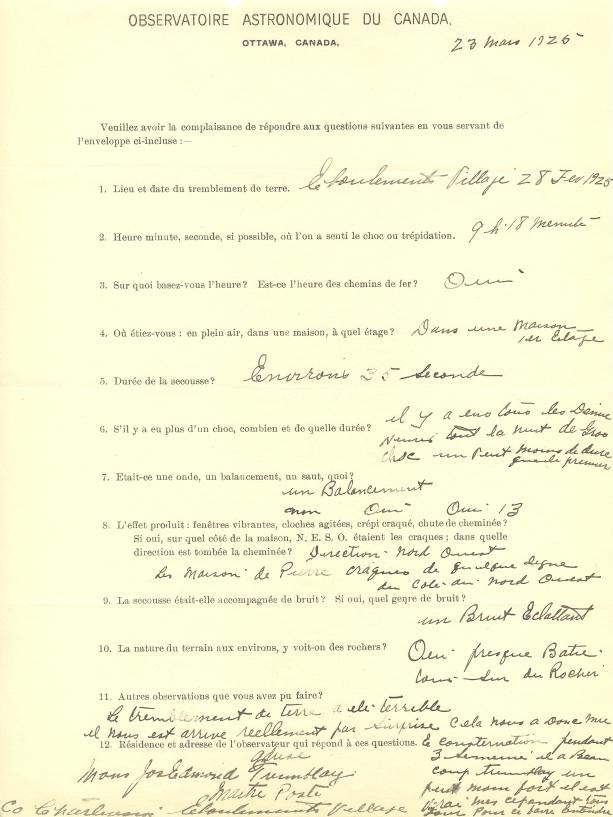 OBSERVATOIRE ASTRONOMIQUE DU CANADA,
OTTAWA, CANADA,
23 Mars 1925
Veuillez avoir la complaisance de répondre aux questions suivantes en vous servant de
l'enveloppe ci-incluse :—
1. Lieu et date du tremblement de terre. Eboulements Village 28 Fev 1925
2. Heure minute, seconde, si possible, où l'on a senti le choc ou trépidation. 9 h. 18 menute
3. Sur quoi basez-vous l'heure? Est-ce l'heure des chemins de fer? Oui
4. Où étiez-vous : en plein air, dans une maison, à quel étage? Dans une Maison
1er Etage
5. Durée de la secousse? Environs 35 Seconde
6. S'il y a eu plus d'un choc, combien et de quelle durée? il y a eus tous les Demie
heures tout la nuit de Gros
choc un peut moins de dure
que le premier
7. Etait-ce une onde, un balancement, un saut, quoi?
un Balancement
non Oui Oui 13
8. L'effet produit : fenêtres vibrantes, cloches agitées, crépi craqué, chute de cheminée?
Si oui, sur quel côté de la maison, N. E. S. O. étaient les craques ; dans quelle
direction est tombée la cheminée? Direction Nord Ouest
Les Maison de Pierre craques de quelque ligne
du Coté du Nord Ouest
9. La secousse était-elle accompagnée de bruit? Si oui, quel genre de bruit?
un Bruit Eclattant
10. La nature du terrain aux environs, y voit-on des rochers? Oui presque Batie
tous Sur du Rocher
11. Autres observations que vous avez pu faire?
Le tremblement de terre a eté terrible
il nous est arrivé reellement par Surprise Cela nous a Donc
12. Résidence et adresse de l'observateur qui répond à ces questions. consternation pendant
3 Semeine il a Beau
coup tremblay un
peut moin fort il est
vrai mes cependant tous
jour pour
Mons Jos Edmond Tremblay
Maitre Poste
Co Charlevoix Eboulements Village